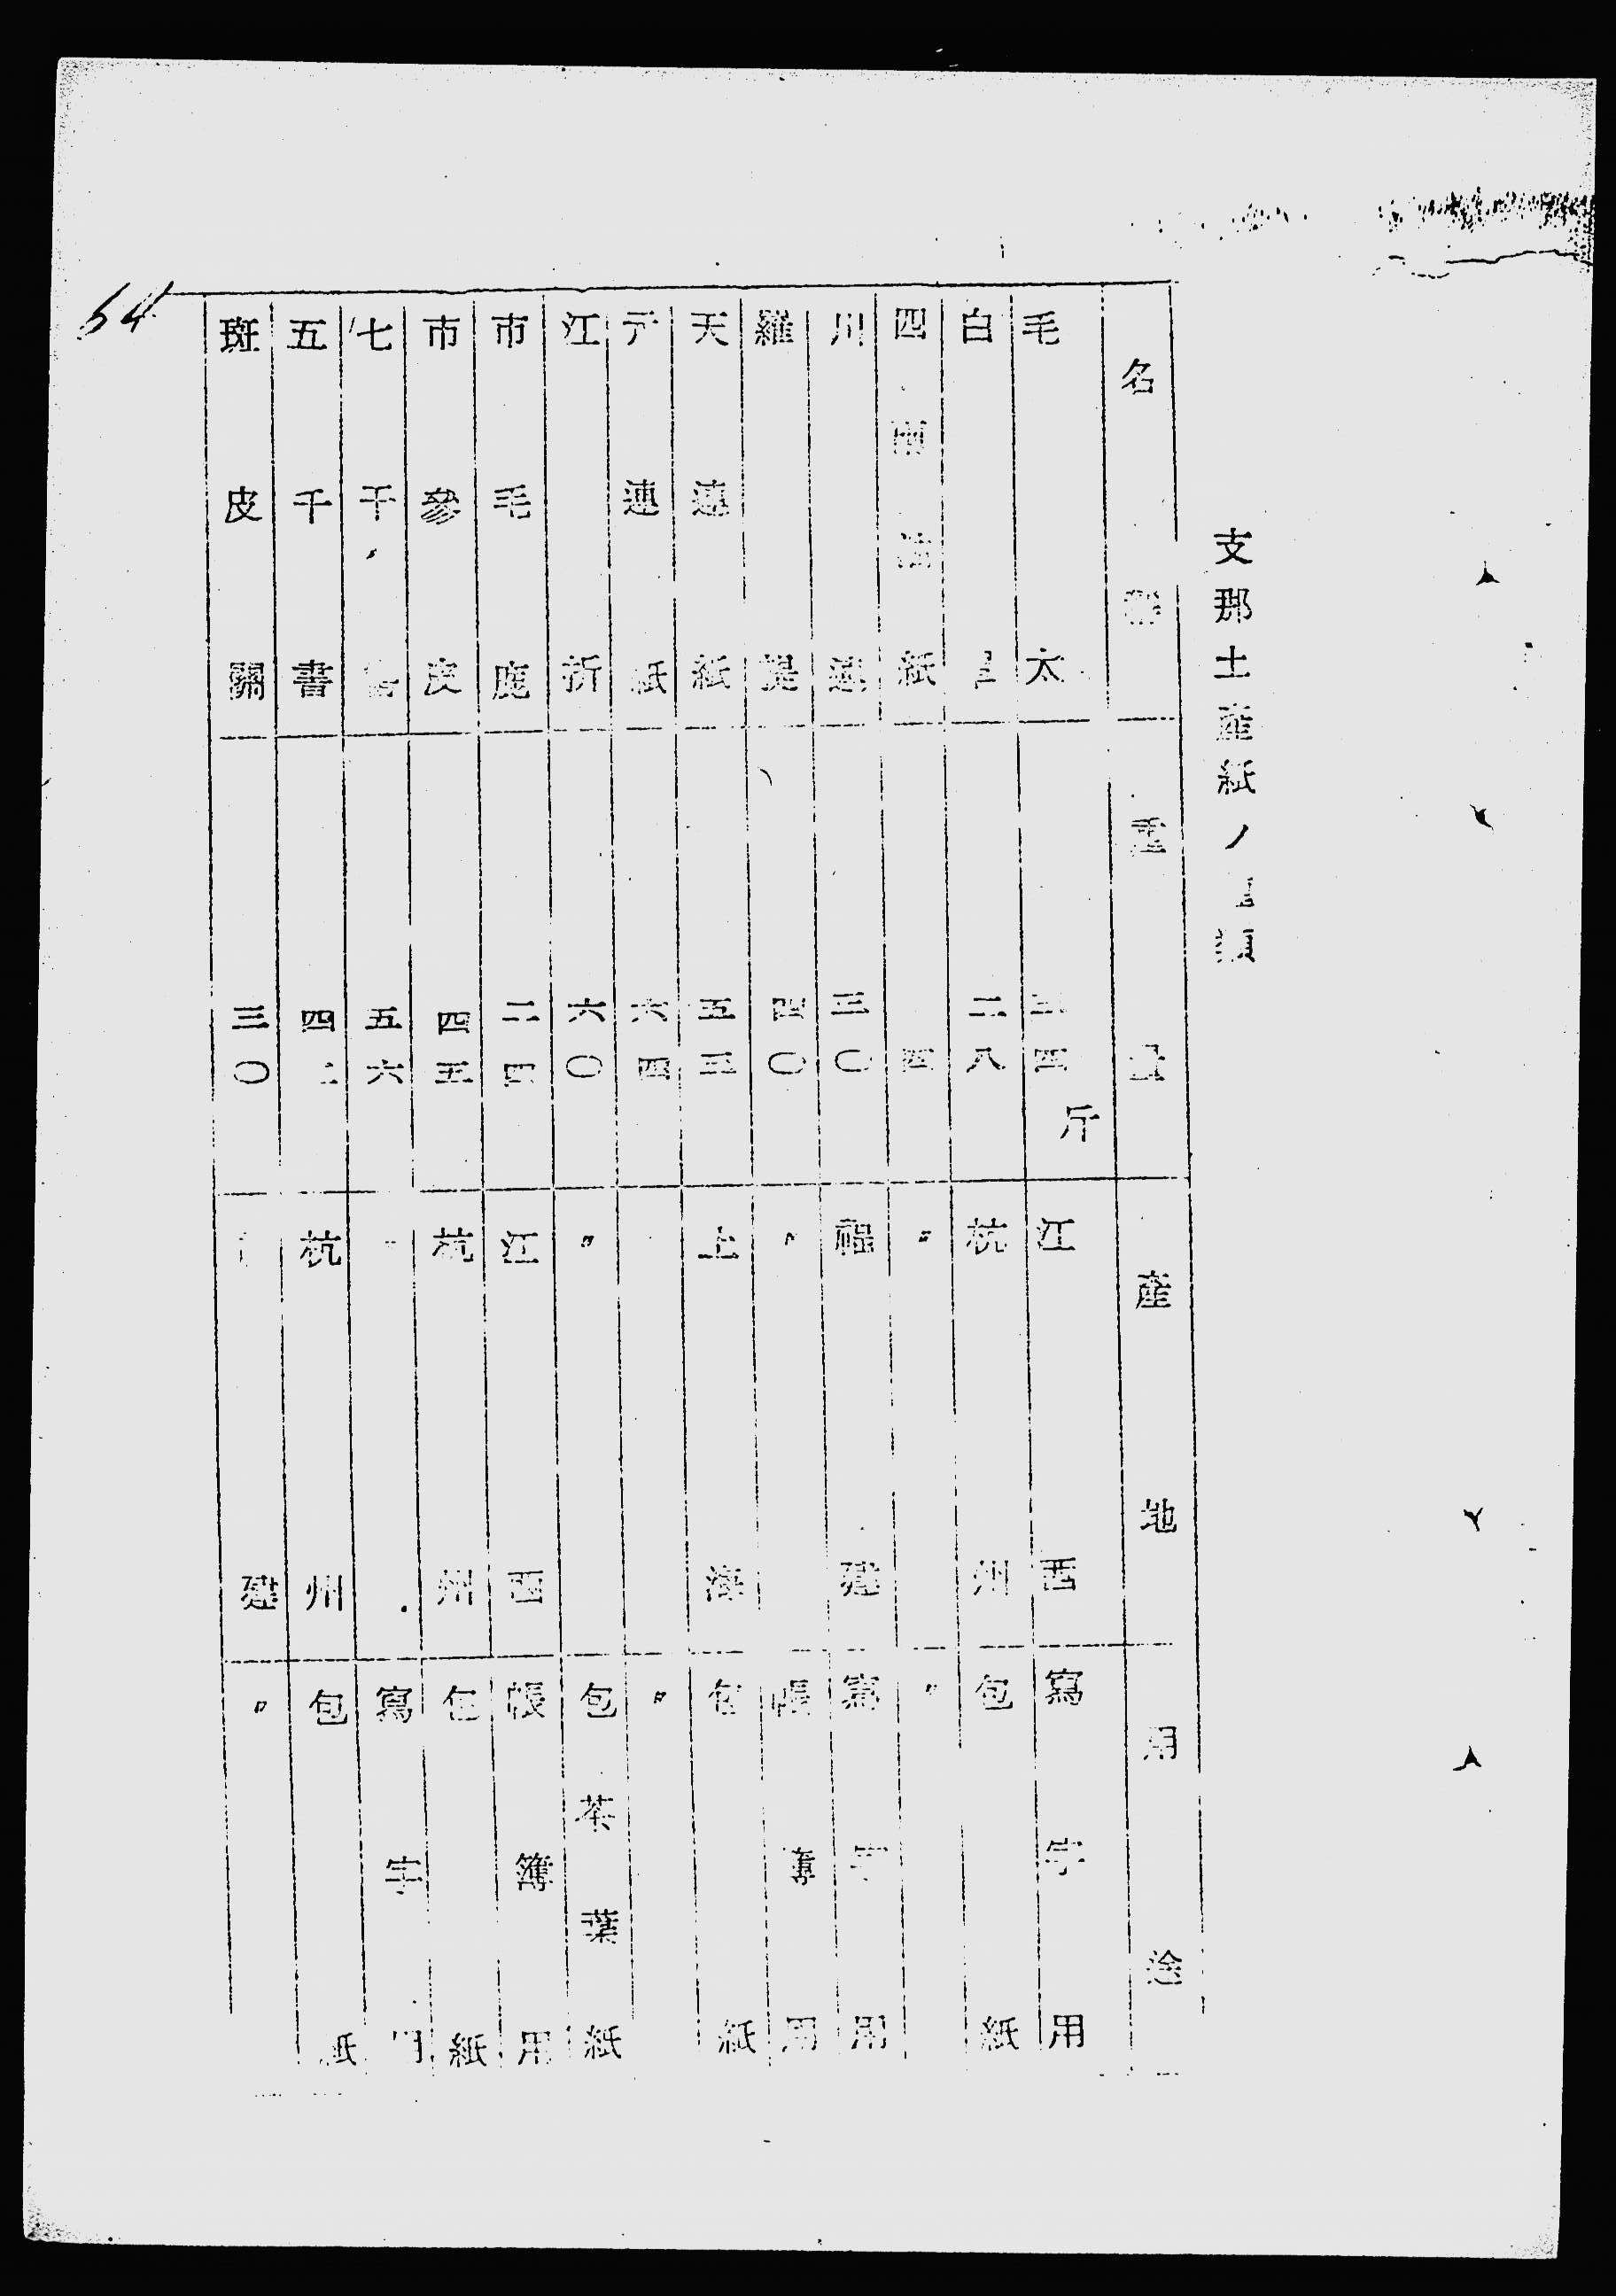 支那土産紙ノ種類
名稱 重量 産地 用途
毛太 三四斤 江西 寫字用
白 二八 杭州 包紙
四 紙 四 〃 〃
川連 三〇 福建 寫字用
羅 四〇 〃 帳簿用
天連紙 五三 上海 包紙
連紙 六四 〃
江折 六〇 〃 包茶葉紙
市毛鹿 二四 江西 帳簿用
市參皮 四五 杭州 包紙
七千 五六 寫字用
五千書 四二 杭州 包紙
斑皮關 三〇 建 〃
54